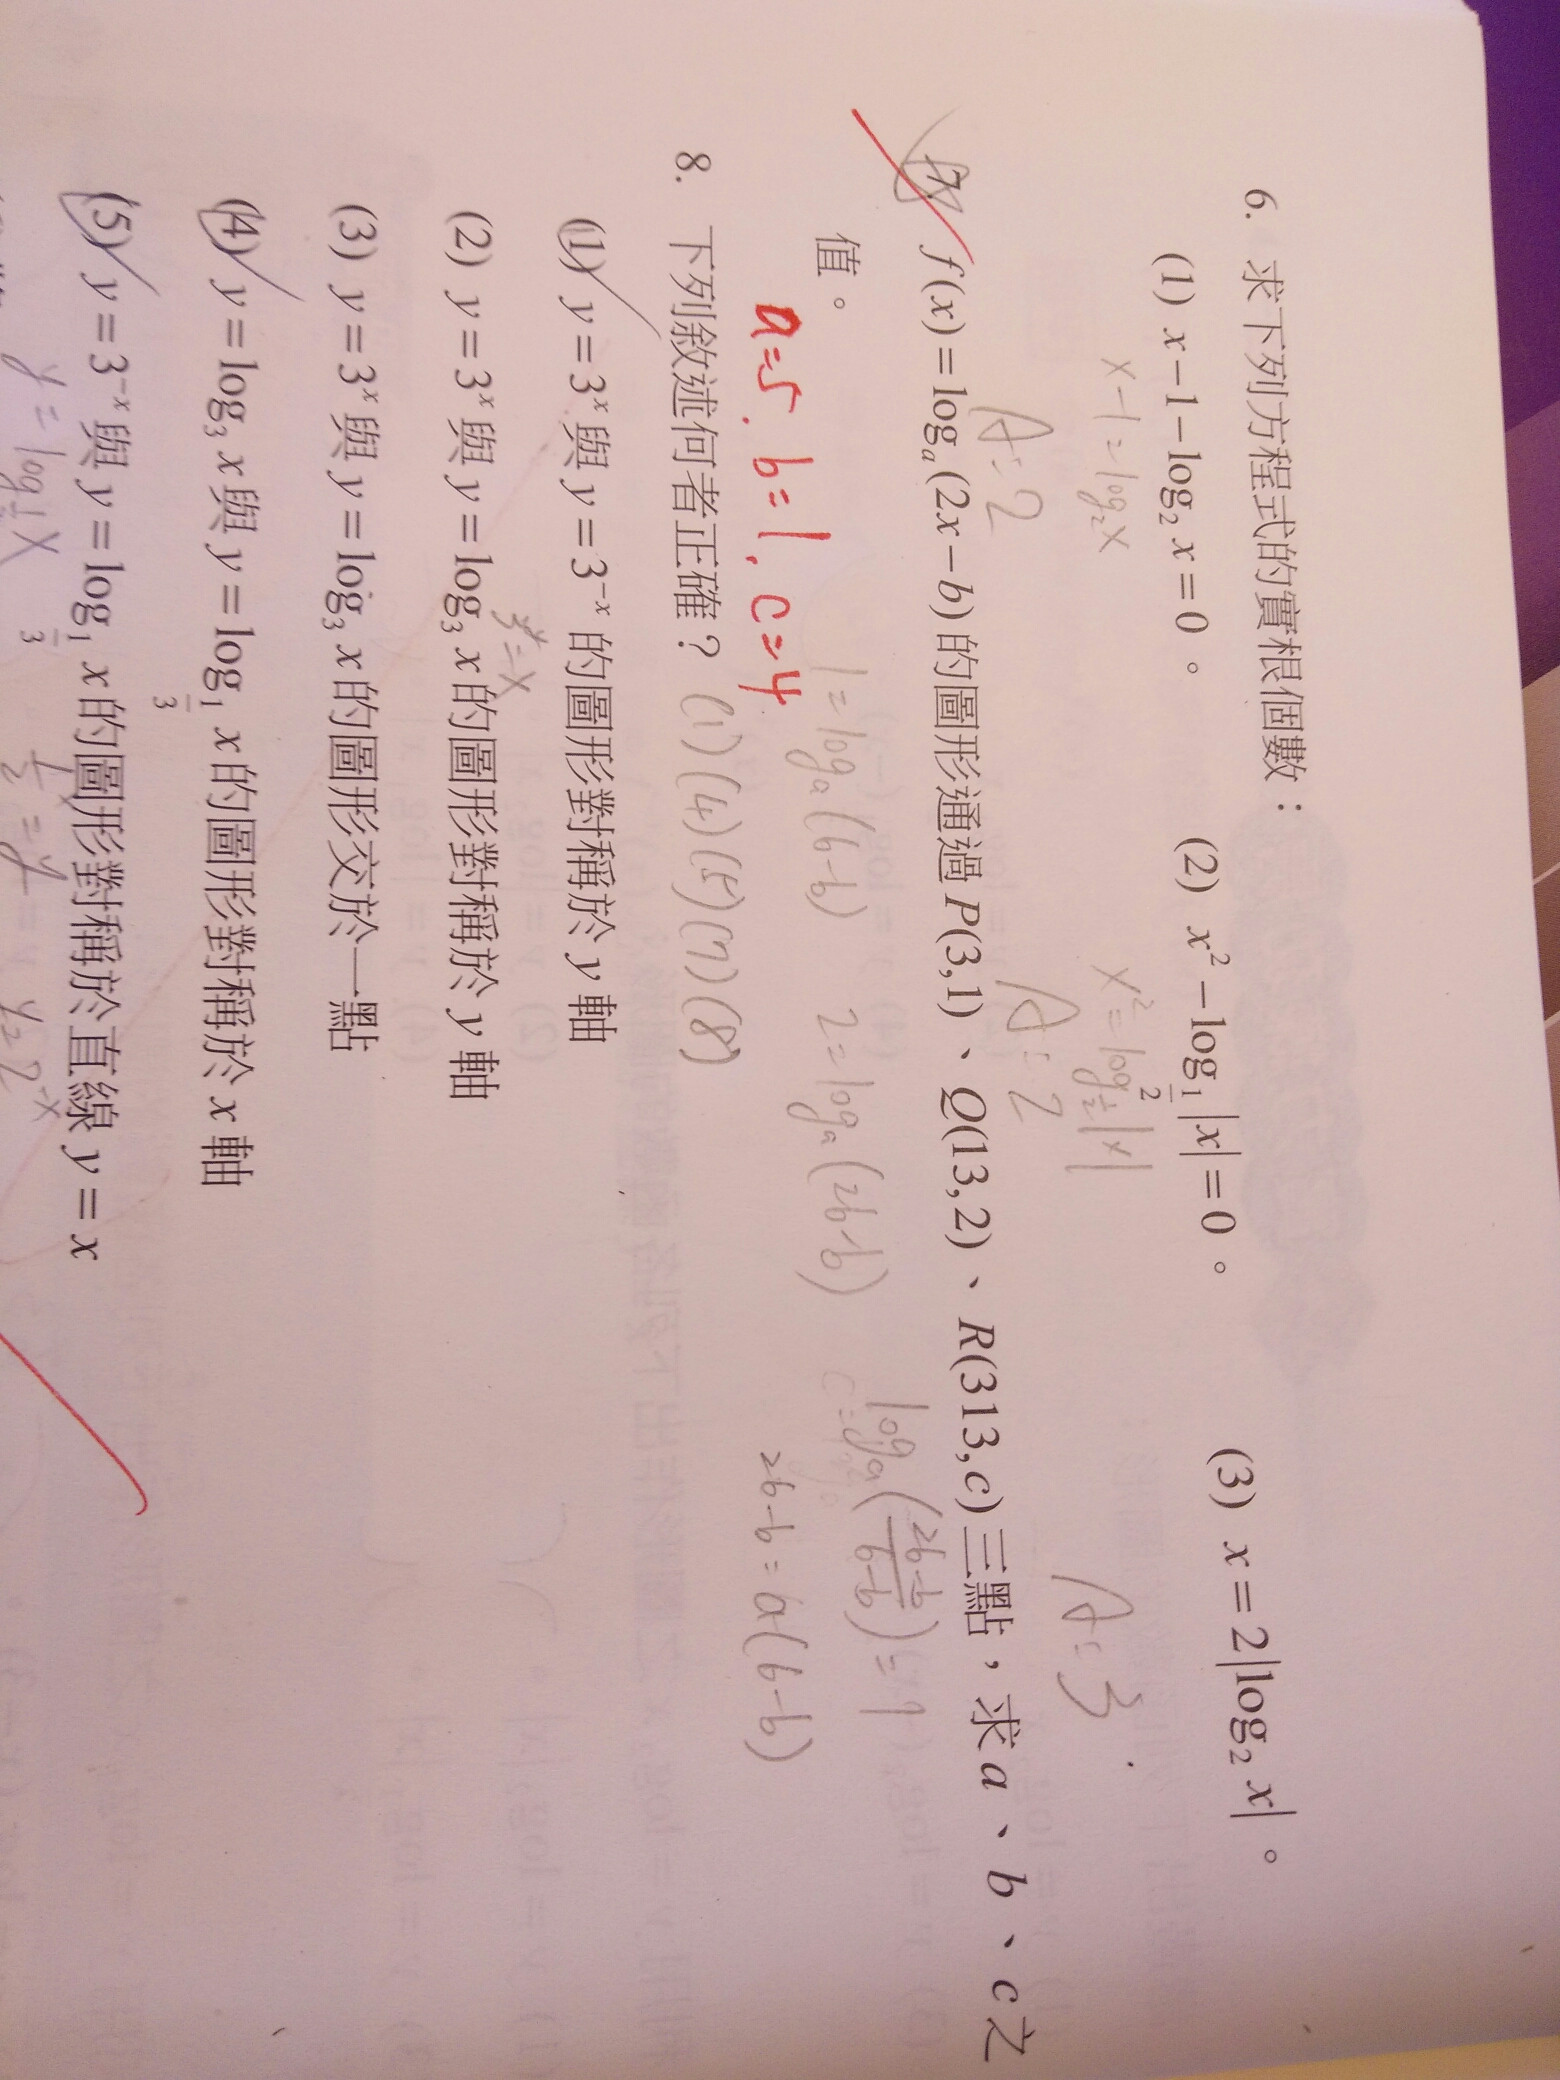 6. 求下列方程式的實根個數：
(1) x−1−log₂ x=0。 (2) x²−log_{1/2}|x|=0。 (3) x=2|log₂ x|。
x−1=log₂x x²=log_{1/2}|x|
A：2 A：2 A：3
7. f(x)=logₐ(2x−b)的圖形通過P(3,1)、Q(13,2)、R(313,c)三點，求a、b、c之
值。
1=logₐ(6−b) 2=logₐ(26−b) logₐ(26−b/6−b)=1
a=5, b=1, c=4
26−b=a(6−b)
8. 下列敘述何者正確？(1)(4)(5)(7)(8)
(1) y=3ˣ與y=3⁻ˣ的圖形對稱於y軸
3ʸ=x
(2) y=3ˣ與y=log₃ x的圖形對稱於y軸
(3) y=3ˣ與y=log₃ x的圖形交於一點
(4) y=log₃ x與y=log_{1/3} x的圖形對稱於x軸
(5) y=3⁻ˣ與y=log_{1/3} x的圖形對稱於直線y=x